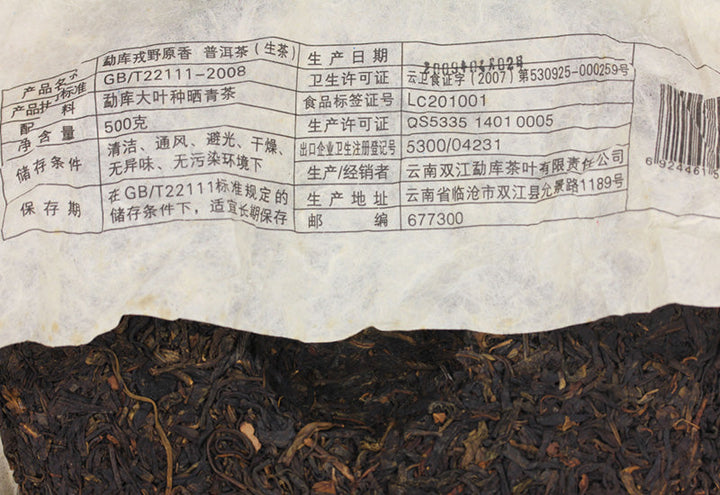 产品名称 勐库戎野原香 普洱茶(生茶)
产品执行标准 GB/T22111-2008
配 料 勐库大叶种晒青茶
净含量 500克
储存条件 清洁、通风、避光、干燥、
无异味、无污染环境下
保存期 在GB/T22111标准规定的
储存条件下,适宜长期保存
生产日期
卫生许可证 云卫食证字(2007)第530925-000259号
食品标签证号 LC201001
生产许可证 QS5335 1401 0005
出口企业卫生注册登记号 5300/04231
生产/经销者 云南双江勐库茶叶有限责任公司
生产地址 云南省临沧市双江县允景路1189号
邮 编 677300
6 924461 5